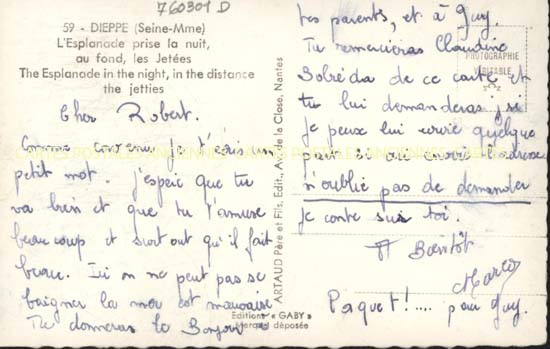 760301 D
59 - DIEPPE (Seine-Mme)
L'Esplanade prise la nuit,
au fond, les Jetées
The Esplanade in the night, in the distance
the jetties
Cher Robert.
Comme convenu je t'écris un
petit mot. J'espère que tu
va bien et que tu t'amuse
beaucoup et surtout qu'il fait
beau. Ici on ne peut pas se
baigner la mer est mauvaise
Tu donneras le Bonjour à
tes parents, et à Guy.
Tu remercieras Claudine
de ce carte et
tu lui demanderas si
je peux lui envoie quelque
part si oui envoie l'adresse
n'oublie pas de demander
je conte sur toi.
A Bientôt
Paquet!.... pour Guy.
ARTAUD Père et Fils, Edit., de la Close, Nantes
Editions « GABY »
Marque déposée
PHOTOGRAPHIE
VÉRITABLE